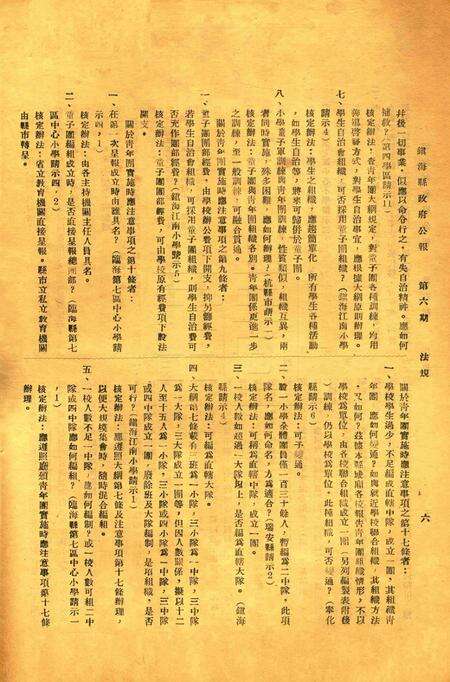 鎮海縣政府公報　第六期　法規　六
幷後一切事業，似應以命令行之，有失自治精神，應如何
補救？（第四學區請示11）
核定辦法：查青年團大綱規定，對童子團各種訓練，均用
七、學生自治會組織，可否採用童子團組織？（鎮海江南小學
請示4）
核定辦法：學生之組織，應趨簡單化，所有學生各種活動
，如學生自治等，將來可歸併於童子團。
八、小學童子軍訓練與青年團訓練，性質類似，組織互異，兩
者同時實施，殊多困難，應如何辦理？（杭縣市請示一）
核定辦法：童子團與青年團組織各別，青年團係更進一步
之訓練，至一般訓練，可融合貫通。
關於青年團實施時應注意事項之第九條者：
一、童子團團部經費，由學校辦公費項下開支，抑另籌經費，
若學生自治會組織，可採用童子團組織，則學生自治費可
否充作團部經費？（鎮海江南小學請示5）
核定辦法：童子團團部經費，可由學校原有經費項下設法
開支。
關於青年團實施時應注意事項之第十條者：
一、在第一次呈報成立時由誰具名？（臨海第七區中心小學請
示四，1）
核定辦法：由各主持機關主任人員具名。
二、童子團編組成立時，是否直接呈報總團部？（臨海縣第七
區中心小學請示四，2）
核定辦法：省立教育機關直接呈報，縣市立私立教育機關
由縣市轉呈。
關於青年團實施時應注意事項之第十七條者：
一、學校學生過少，不足編成直轄中隊，成立一團，其組織青
年團，應如何變通？如與就近學校聯合組織，其組織方法
學校為單位，由各校聯合組織成立一團（另列編製表附後
）訓練，仍以學校為單位，此種組織，可否變通？（奉化
縣請示6）
核定辦法：可予變通。
二、設一小學集體團員僅一百三十餘人，暫編為二中隊，此項
隊名，應如何命名，人為適合？（瑞安縣請示2）
核定辦法：可稱為直轄中隊，成立一團。
三、一校人數如超過一大隊以上，是否編為直轄大隊。（鎮海
縣請示4）
核定辦法：可編為直轄大隊。
四、大綱第七條載有三班為一小隊，三小隊為一中隊，三中隊
為一大隊，三大隊成立一團等，但因人數關係，擬以十二
人至十五人為一小隊，三小隊或四小隊為一中隊，三中隊
或四中隊成立一團，廢除班及大隊編制，是項組織，是否
可行？（鎮海江南小學請示1）
核定辦法：應遵照大綱第七條及注意事項第十七條辦理，
以便大規模集會時，隨時混合編組。
五、一校人數不足一中隊，應如何編制？或一校人數可組二中
隊或四中隊應如何編組？（臨海縣第七區中心小學請示一
，1）
核定辦法：應遵照廳頒青年團實施時應注意事項第十七條
辦理。